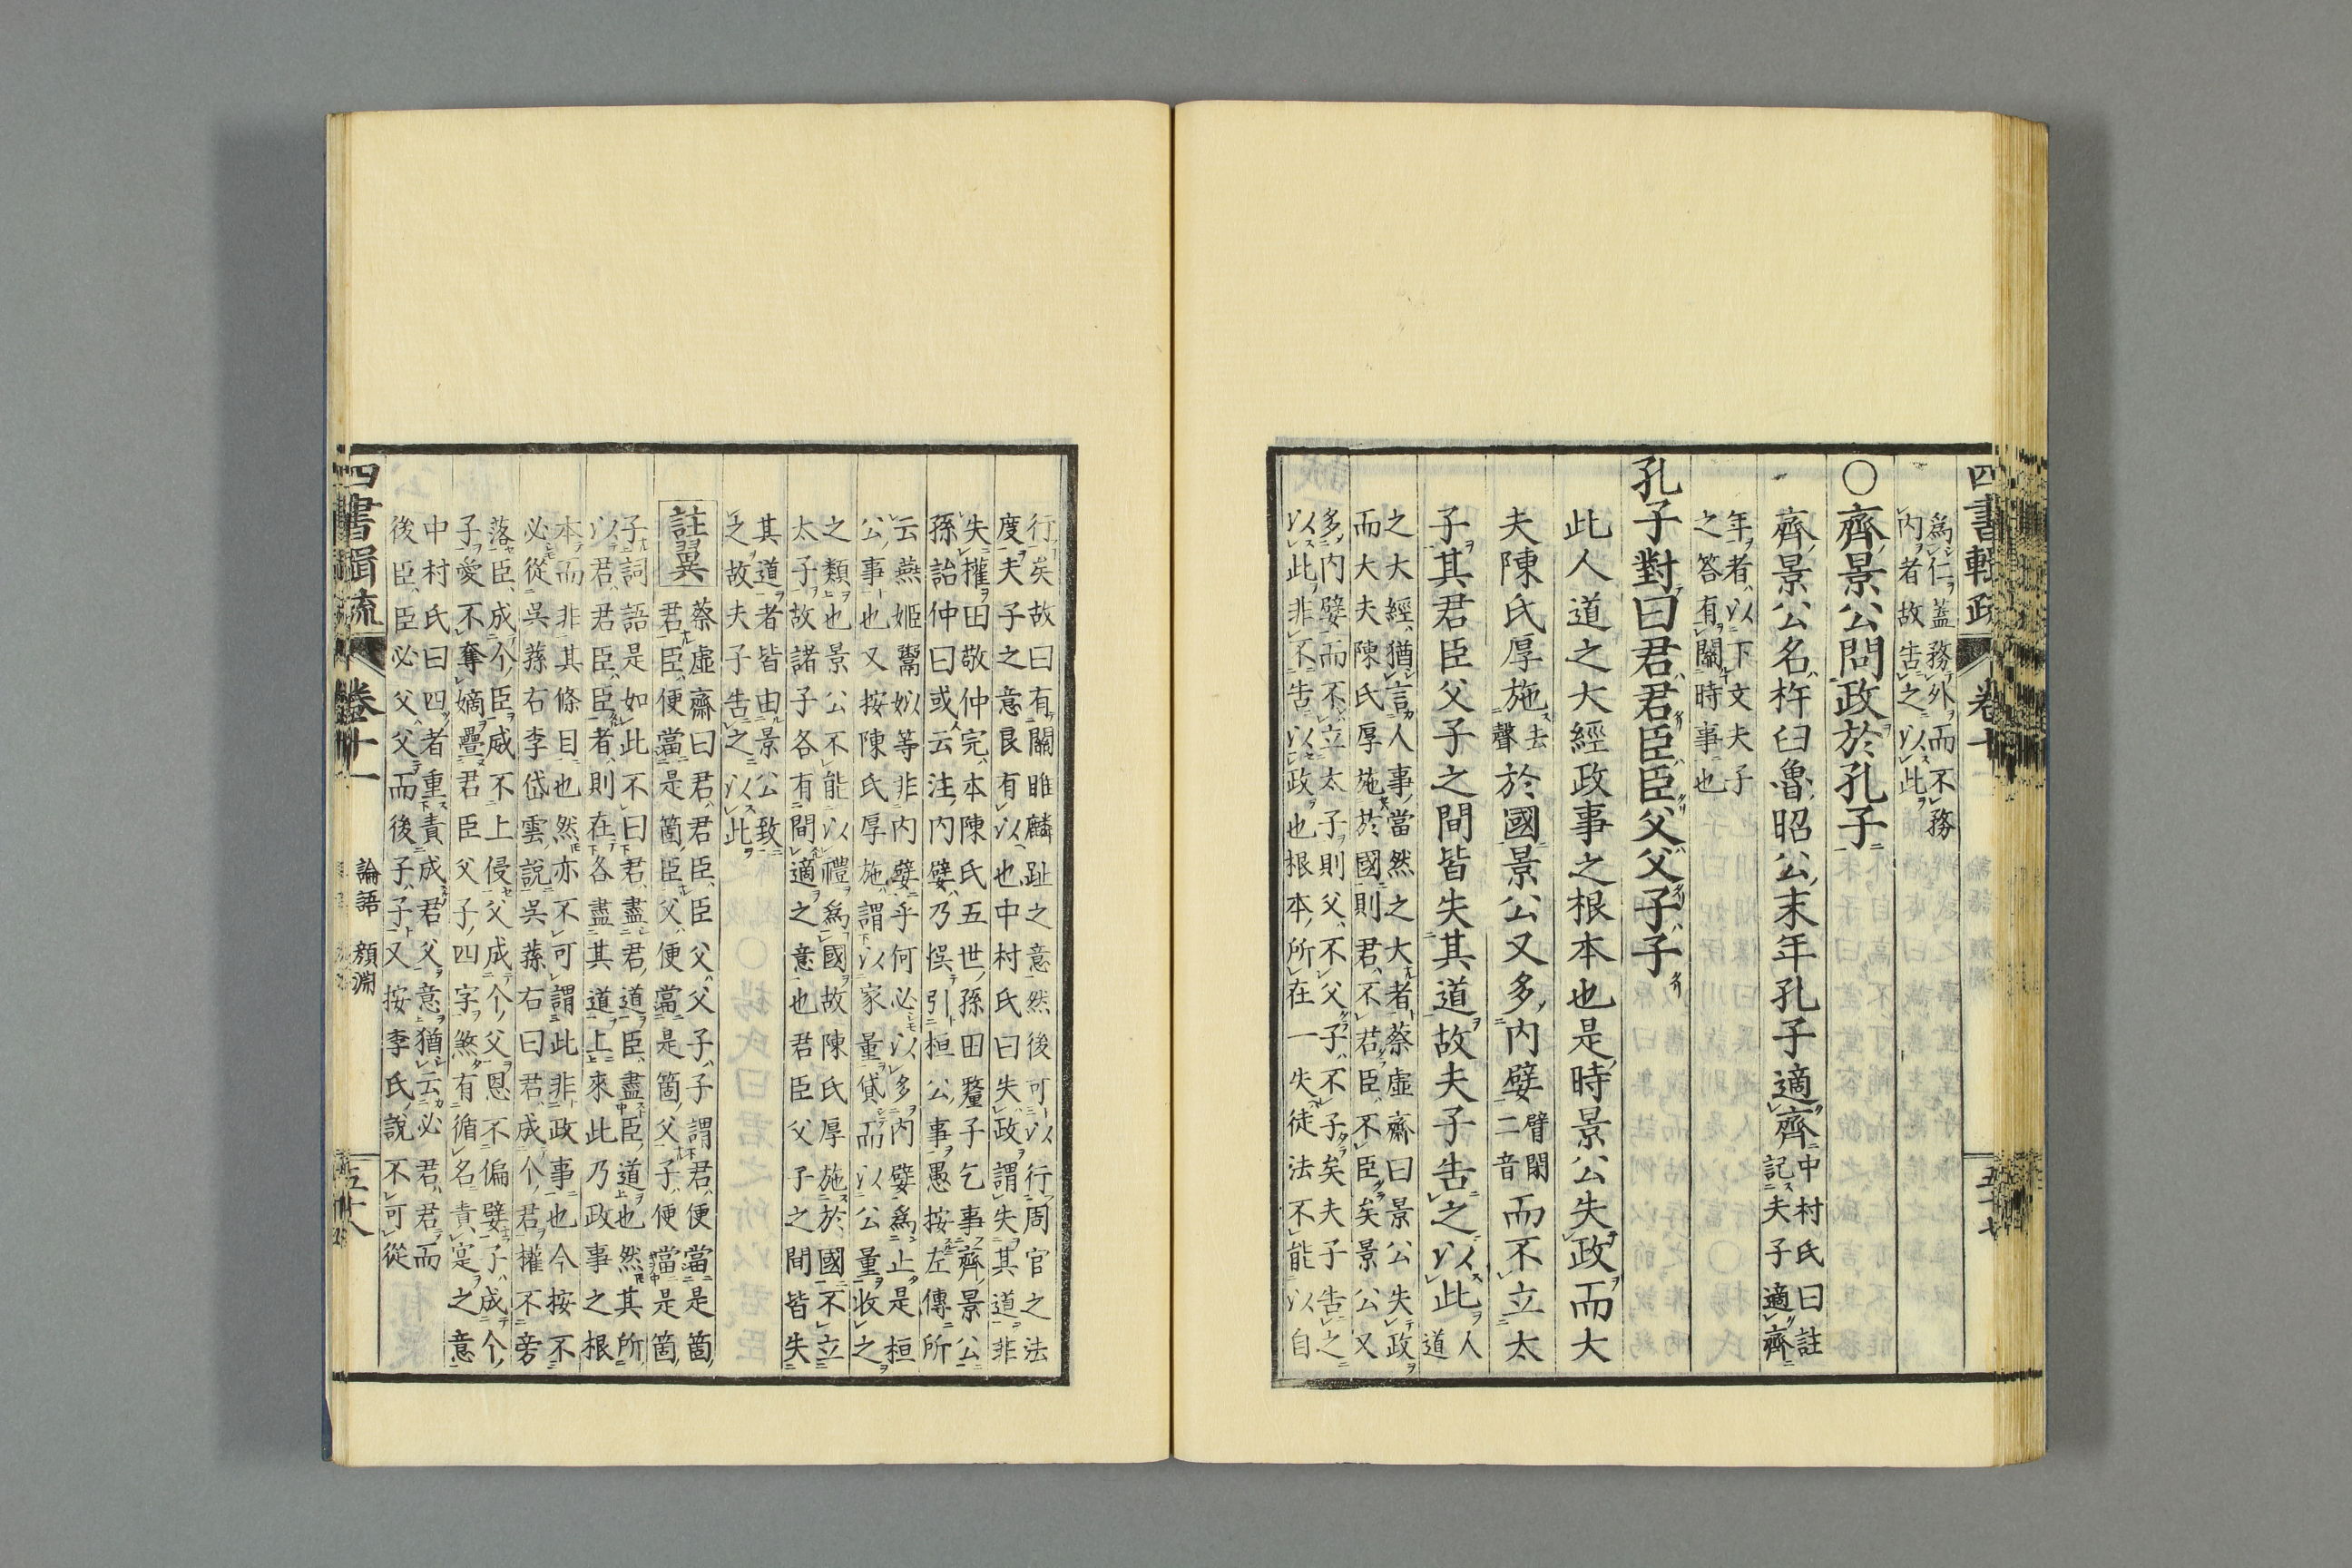 爲仁蓋務外而不務
内者故告之以此
○齊景公問政於孔子
齊景公名杵臼魯昭公末年孔子適齊
中村氏曰註
記夫子適齊
年者以下文夫子
之答有關時事也
孔子對曰君君臣臣父父子子
此人道之大經政事之根本也是時景公失政而大
夫陳氏厚施
去
聲
於國景公又多内嬖
臂閉
二音
而不立太
子其君臣父子之間皆失其道故夫子告之以此
人
道
之大經猶言人事當然之大者蔡虛齋曰景公失政
而大夫陳氏厚施於國則君不君臣不臣矣景公又
多内嬖而不立太子則父不父子不子矣夫子告之
以此非不告以政也根本所在一失徒法不能以自
行矣故曰有關雎麟趾之意然後可以行周官之法
度夫子之意良有以也中村氏曰失政謂失其道非
失權田敬仲完本陳氏五世孫田釐子乞事齊景公
孫詒仲曰或云注内嬖乃誤引桓公事愚按左傳所
云燕姬鬻姒等非内嬖乎何必以多内嬖爲止是桓
公事也又按陳氏厚施謂以家量貸而以公量收之
之類也景公不能以禮爲國故陳氏厚施於國不立
太子故諸子各有間適之意也君臣父子之間皆失
其道者皆由景公致
之故夫子告之以此
註翼
蔡虛齋曰君君臣臣父父子子謂君便當是箇
君臣便當是箇臣父便當是箇父子便當是箇
子詞語是如此不曰君盡君道臣盡臣道也然其所
以君君臣臣者則在各盡其道上來此乃政事之根
本而非其條目也然亦不可謂此非政事也今按不
必從吳蓀右李岱雲說吳蓀右曰君成个君權不旁
落臣成个臣威不上侵父成个父恩不偏嬖子成个
子愛不奪嫡疊君臣父子四字煞有循名責寔之意
中村氏曰四者重責成君父意猶云必君君而
後臣臣必父父而後子子又按李氏說不可從
四書輯疏
卷十一
論語 顔淵
五十八